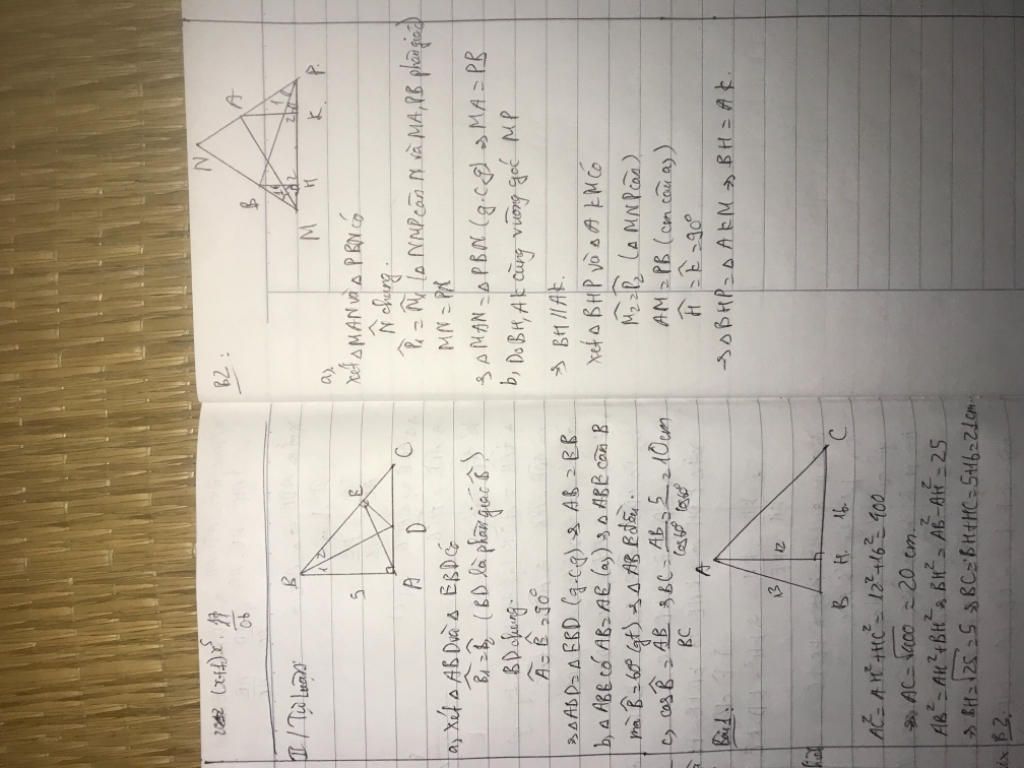 (x+1)x⁵.
II / Tự luận
B
1 2
E
5
A
D
C
a, xét △ABD và △EBD có
B̂₁ = B̂₂ (BD là phân giác B̂)
BD chung.
Â = Ê = 90°
⇒ △ABD = △EBD (g.c.g) ⇒ AB = EB
b, △ABE có AB = AE (a,) ⇒ △ABE cân B
mà B̂ = 60° (gt) ⇒ △ABE đều.
c, cos B̂ = AB/BC ⇒ BC = AB/cos60° = 5/cos60° = 10cm
Bài 1:
A
13
12
B
H.
16.
C
AC² = AH² + HC² = 12² + 16² = 400
⇒ AC = √400 = 20 cm.
AB² = AH² + BH² ⇒ BH² = AB² - AH² = 25
⇒ BH = √25 = 5 ⇒ BC = BH + HC = 5 + 16 = 21cm
B2.
B2:
N
B
A
M
H
K.
P.
a,
xét △MAN và △PBN có
N̂ chung.
P̂₁ = M̂₁ (△NMP cân N và MA, PB phân giác)
MN = PN
⇒ △MAN = △PBN (g.c.g) ⇒ MA = PB
b, Do BH, AK cùng vuông góc MP
⇒ BH // AK.
xét △BHP và △AKM có
M̂₂ = P̂₂ (△MNP cân)
AM = PB (con câu a,)
Ĥ = K̂ = 90°
⇒ △BHP = △AKM ⇒ BH = AK.